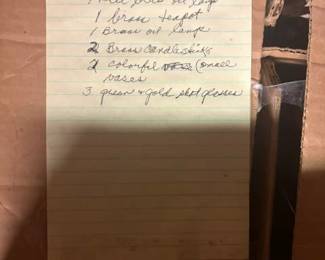 oil lamp
1 brass teapot
1 Brass oil lamp
2 Brass candlesticks
2 colorful (small
vases
3 green & gold shot glasses